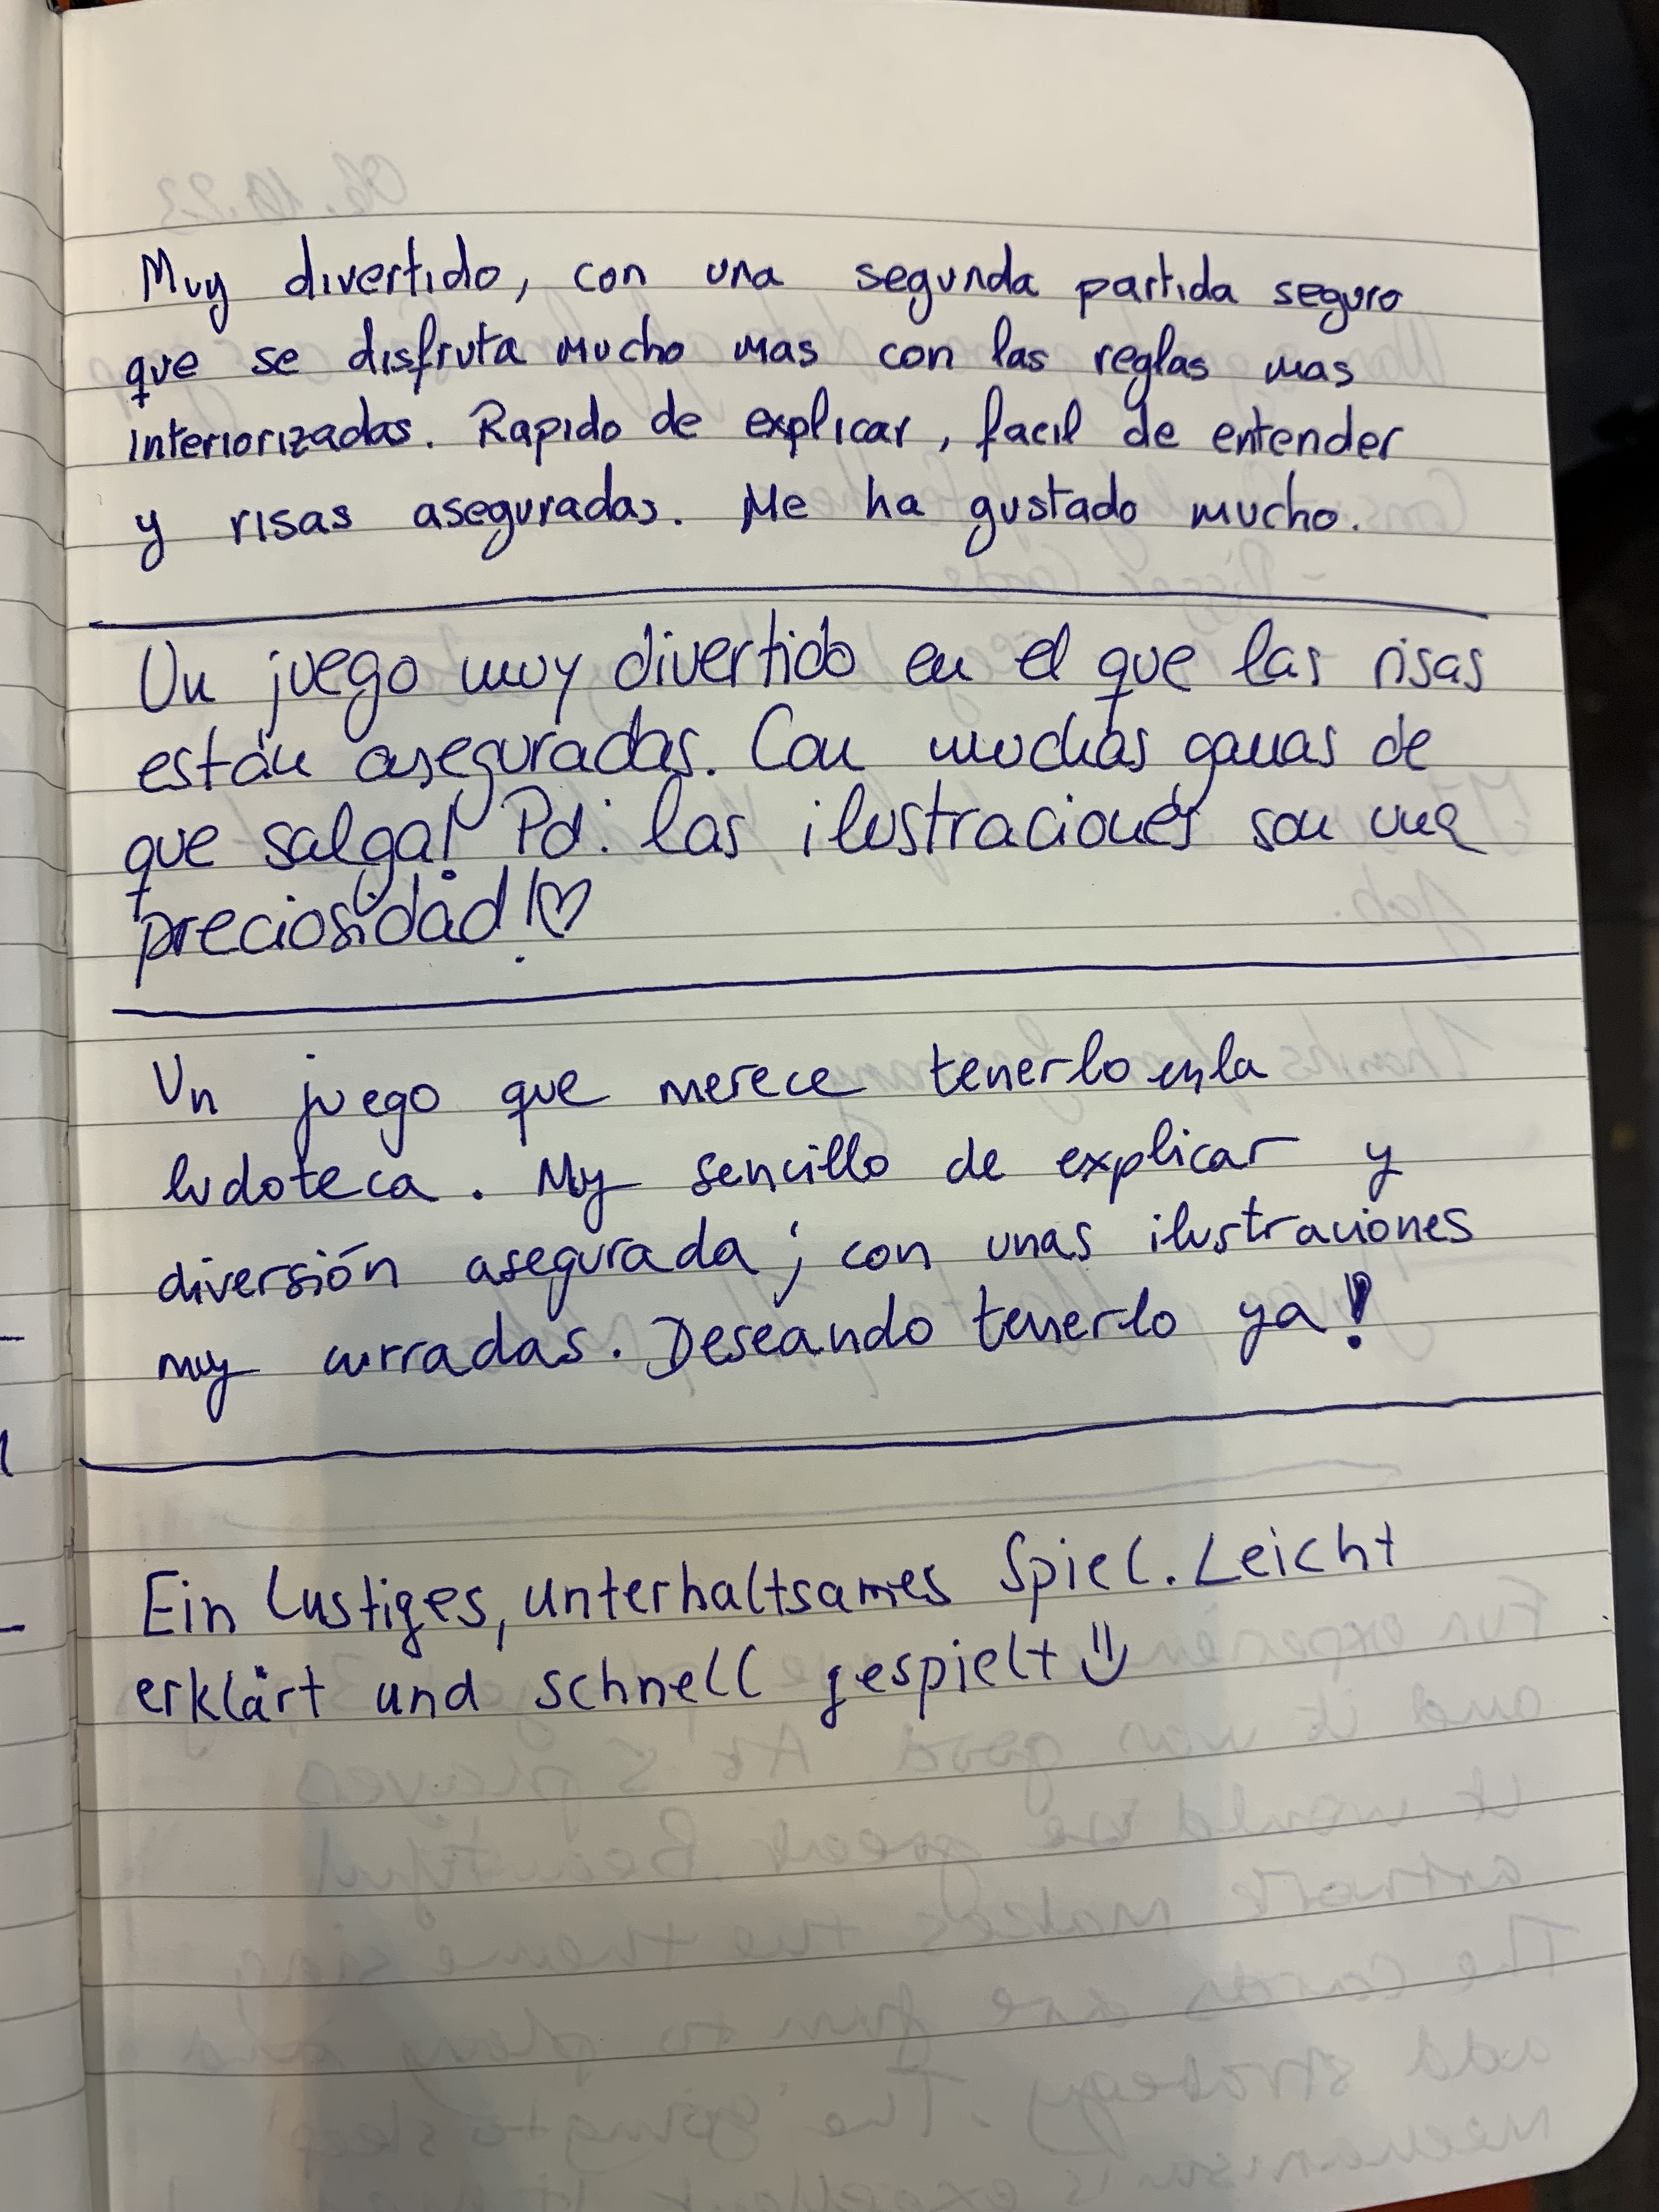 Muy divertido, con una segunda partida seguro
que se disfruta mucho mas con las reglas mas
interiorizadas. Rapido de explicar, facil de entender
y risas aseguradas. Me ha gustado mucho.
Un juego muy divertido en el que las risas
están aseguradas. Con muchas ganas de
que salga! Pd: las ilustraciones son una
preciosidad!♡
Un juego que merece tenerlo en la
ludoteca. Muy sencillo de explicar y
diversión asegurada; con unas ilustraciones
muy curradas. Deseando tenerlo ya!
Ein lustiges, unterhaltsames Spiel. Leicht
erklärt und schnell gespielt :)